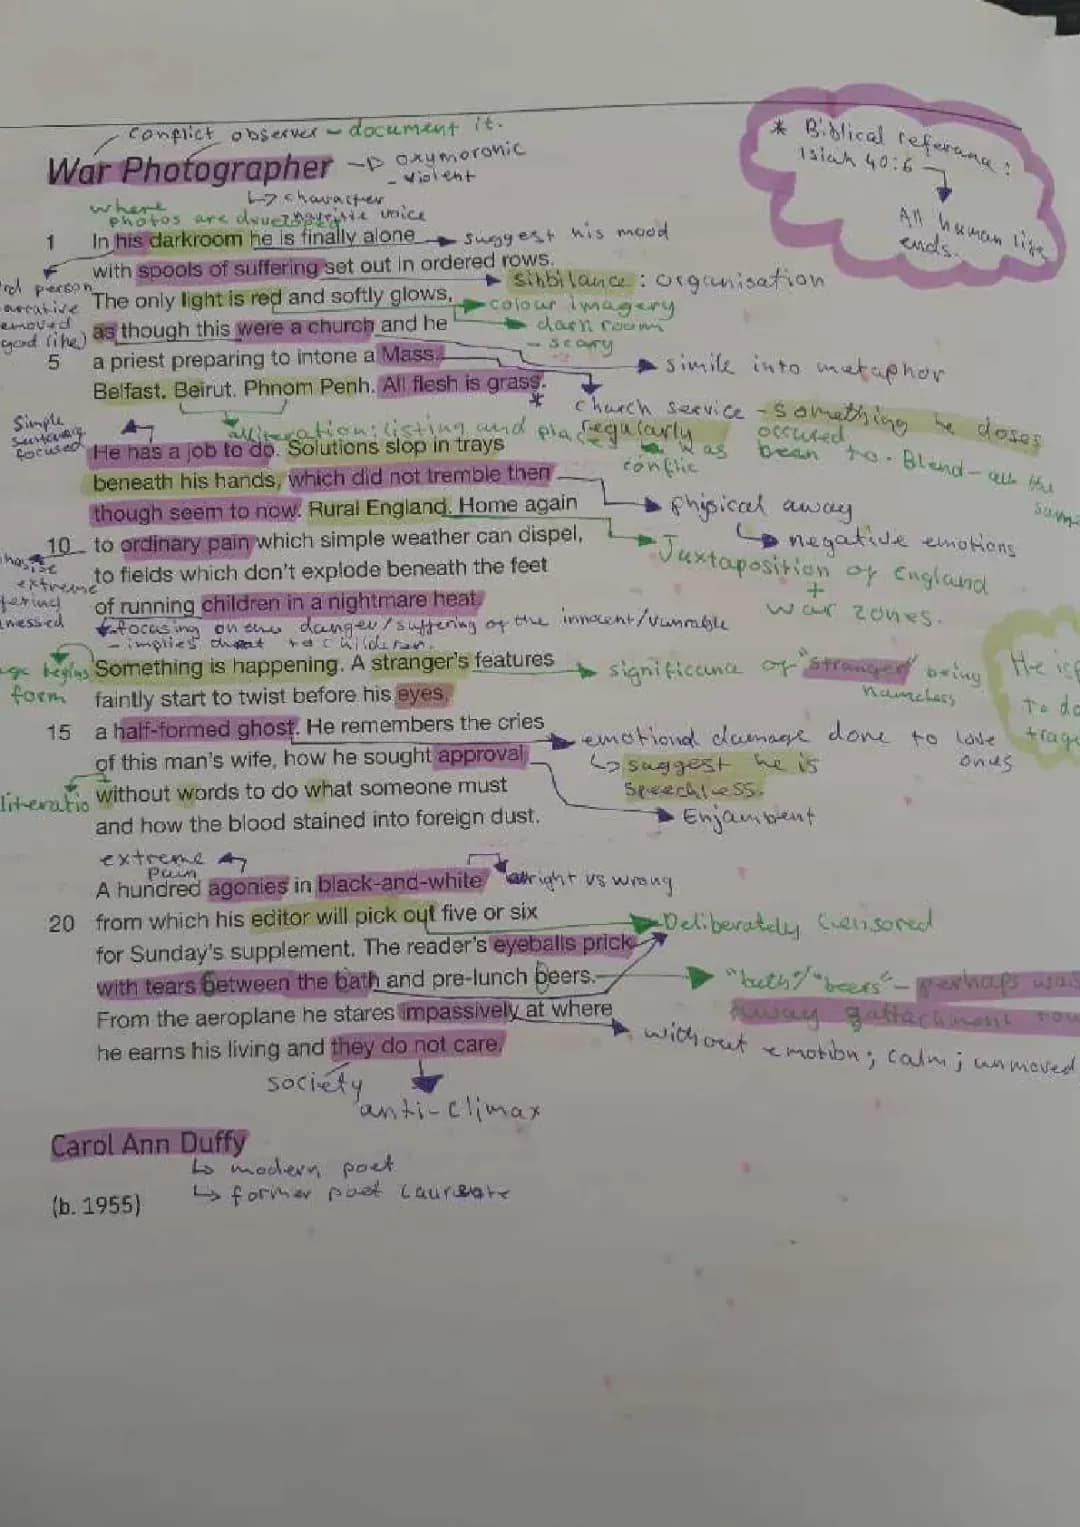 conflict observer - document it.
War Photographer → oxymoronic
- violent
↳ character
where photos are developed
narrative voice
1 In his darkroom he is finally alone → suggest his mood
with spools of suffering set out in ordered rows.
→ sibbilance : organisation
3rd person narrative
removed
god like)
The only light is red and softly glows, → colour imagery
as though this were a church and he → dark room
- scary
5 a priest preparing to intone a Mass. → simile into metaphor
Belfast. Beirut. Phnom Penh. All flesh is grass.
*
* Biblical referance :
Isiah 40:6
All human life
ends.
church service - something he doses
regularly
alliteration: listing and places
conflic has occured
been to. Blend - all the
same
Simple
sentence
focused
He has a job to do. Solutions slop in trays
beneath his hands, which did not tremble then
though seem to now. Rural England. Home again
→ phisical away
↳ negative emotions
10 to ordinary pain which simple weather can dispel,
→ Juxtaposition of England
+
war zones.
to fields which don't explode beneath the feet
extreme
of running children in a nightmare heat.
focusing on the danger/suffering of the innocent/vunrable
- implies threat to childeren.
begins
form
Something is happening. A stranger's features
→ significance of "stranger" being
nameless
faintly start to twist before his eyes,
15 a half-formed ghost. He remembers the cries
→ emotional damage done to love
ones
of this man's wife, how he sought approval
↳ suggest he is
speechless.
without words to do what someone must
→ Enjambent
and how the blood stained into foreign dust.
extreme
pain
A hundred agonies in black-and-white
right vs wrong
20 from which his editor will pick out five or six
→ Deliberately Censored
for Sunday's supplement. The reader's eyeballs prick
with tears between the bath and pre-lunch beers.
→ "bath"/"beers" - perhaps was
away
From the aeroplane he stares impassively at where
→ without emotion; calm; unmoved
he earns his living and they do not care.
society
anti-climax
Carol Ann Duffy
↳ modern poet
↳ former poet laureate
(b. 1955)